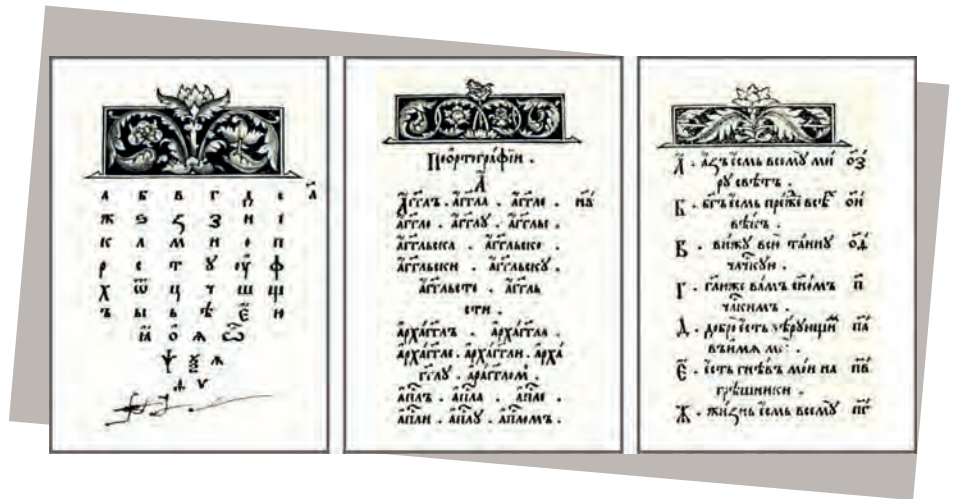 а б в г д є а҃
ж ѕ ꙁ з и і
к л м н о п
р с т у оу ф
х ѿ ц ч ш щ
ъ ы ь ѣ є ю
ꙗ о ѧ ѡ
ѧ
ѵ
По ортографїи .
А
А҆́гг҃лъ . а҆́гг҃ла . а҆́гг҃ле .
а҆́гг҃ло . а҆́гг҃лу . а҆́гг҃лы .
а҆́гг҃льска . а҆́гг҃льско .
а҆́гг҃льски . а҆́гг҃льску .
а҆́гг҃льсте . а҆́гг҃ль
сти .
а҆рха́гг҃лъ . а҆рха́гг҃ла .
а҆рха́гг҃ле . а҆рха́гг҃ли . а҆рха́
гг҃лу .
а҆п҃лъ . а҆п҃ла . а҆п҃ле .
а҆п҃ли . а҆п҃лу . а҆п҃ломъ .
А . а҆́зъ є҆́смь всемꙋ̀ ми́ о҃з
рꙋ свѣ́тъ .
Б . бг҃ъ є҆́смь пре́же всѣ́ о҃и
вѣ́къ .
В . ви́жꙋ всю̀ та́йнꙋ
чл҃чкꙋю .
Г . гл҃ю же ва́мъ п҃
чл҃кимъ .
Д . добро̀ є҆́сть вѣ́рꙋющи п҃а
въ и҆́мѧ мо .
Є . є҆́сть гнѣ́въ мо́и на п҃в
грѣ́шники .
Ж . жи́знь є҆́смь всемꙋ̀ п҃г